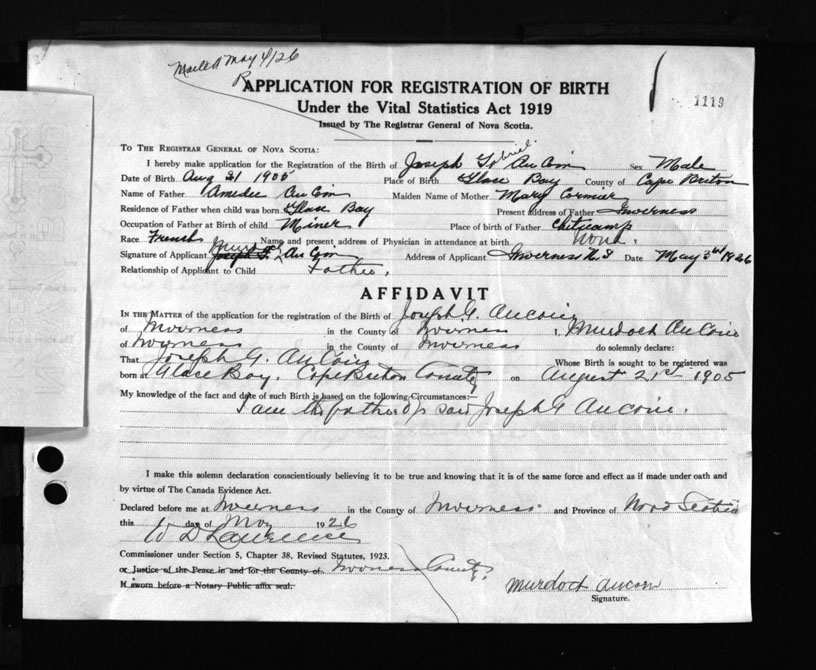 Mailed May 4/26
R
APPLICATION FOR REGISTRATION OF BIRTH
1119
Under the Vital Statistics Act 1919
Issued by The Registrar General of Nova Scotia.
TO THE REGISTRAR GENERAL OF NOVA SCOTIA:
I hereby make application for the Registration of the Birth of Joseph Gabriel AuCoin Sex Male
Date of Birth Aug 21 1905 Place of Birth Glace Bay County of Cape Briton
Name of Father Amedee AuCoin Maiden Name of Mother Mary Cormier
Residence of Father when child was born Glace Bay Present address of Father Inverness
Occupation of Father at Birth of child Miner Place of birth of Father Cheticamp
Race French Name and present address of Physician in attendance at birth None.
Signature of Applicant Murdoch Joseph G. AuCoin Address of Applicant Inverness N.S Date May 3rd 1926
Relationship of Applicant to Child Father.
AFFIDAVIT
IN THE MATTER of the application for the registration of the Birth of Joseph G. Aucoin
of Inverness in the County of Inverness I, Murdoch AuCoin
of Inverness in the County of Inverness do solemnly declare:
That Joseph G. AuCoin Whose Birth is sought to be registered was
born at Glace Bay, Cape Breton County on August 21st 1905
My knowledge of the fact and date of such Birth is based on the following Circumstances:—
I am the father of said Joseph G Aucoin.
I make this solemn declaration conscientiously believing it to be true and knowing that it is of the same force and effect as if made under oath and
by virtue of The Canada Evidence Act.
Declared before me at Inverness in the County of Inverness and Province of Nova Scotia
this day of May 1926
W D Lawrence
Commissioner under Section 5, Chapter 38, Revised Statutes, 1923.
or Justice of the Peace in and for the County of Inverness County.
If sworn before a Notary Public affix seal.
Murdoch Aucoin
Signature.